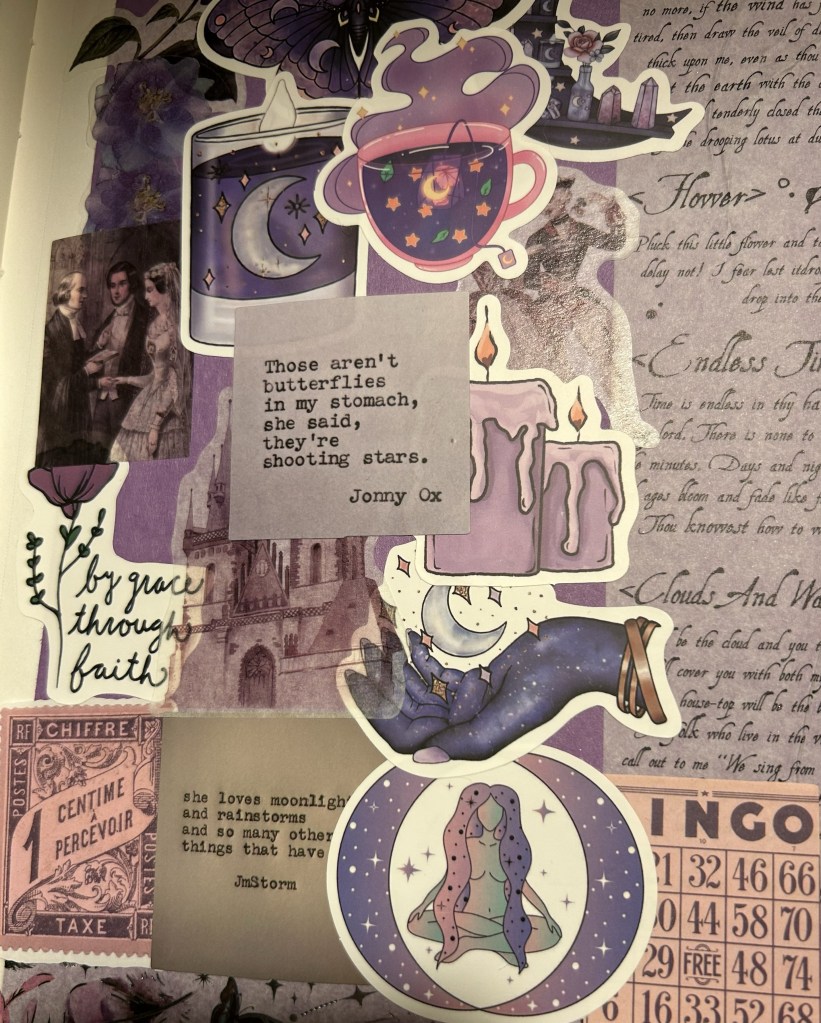 no more, if the wind has
tired, then draw the veil of d
thick upon me, even as thou
the earth with the
tenderly closed th
drooping lotus at du
<Flower>
Pluck this little flower and t
delay not! I fear lest it dro
drop into the
<Endless Ti
Time is endless in thy ha
lord. There is none to
minutes. Days and nig
ages bloom and fade like f
Thou knowest how to w
<Clouds And Wa
be the cloud and you t
cover you with both m
house-top will be the b
folk who live in the
call out to me "We sing from
Those aren't
butterflies
in my stomach,
she said,
they're
shooting stars.
Jonny Ox
by grace
through
faith
RF CHIFFRE
POSTES
1 CENTIME
À
PERCEVOIR
POSTES
TAXE R
she loves moonligh
and rainstorms
and so many other
things that have
JmStorm
INGO
21 32 46 66
0 44 58 70
29 FREE 48 74
6 16 33 52 68